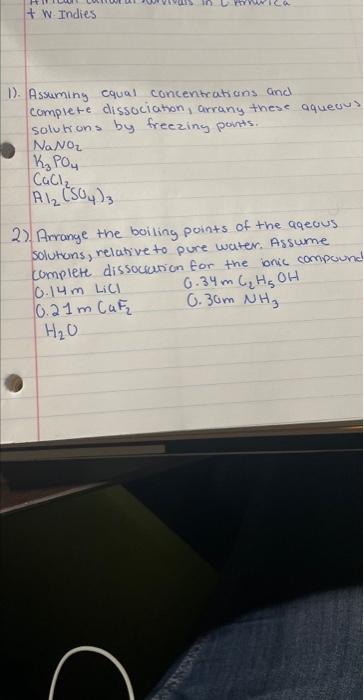 in L America
+ W. Indies
1). Assuming equal concentrations and
complete dissociation, arrany these aqueous
solutions by freezing points.
NaNO₂
K₃PO₄
CaCl₂
Al₂(SO₄)₃
2). Arrange the boiling points of the aqeous
solutions, relative to pure water. Assume
complete dissociation for the ionic compound
0.14m LiCl 0.34m C₂H₅OH
0.21m CaF₂ 0.30m NH₃
H₂O